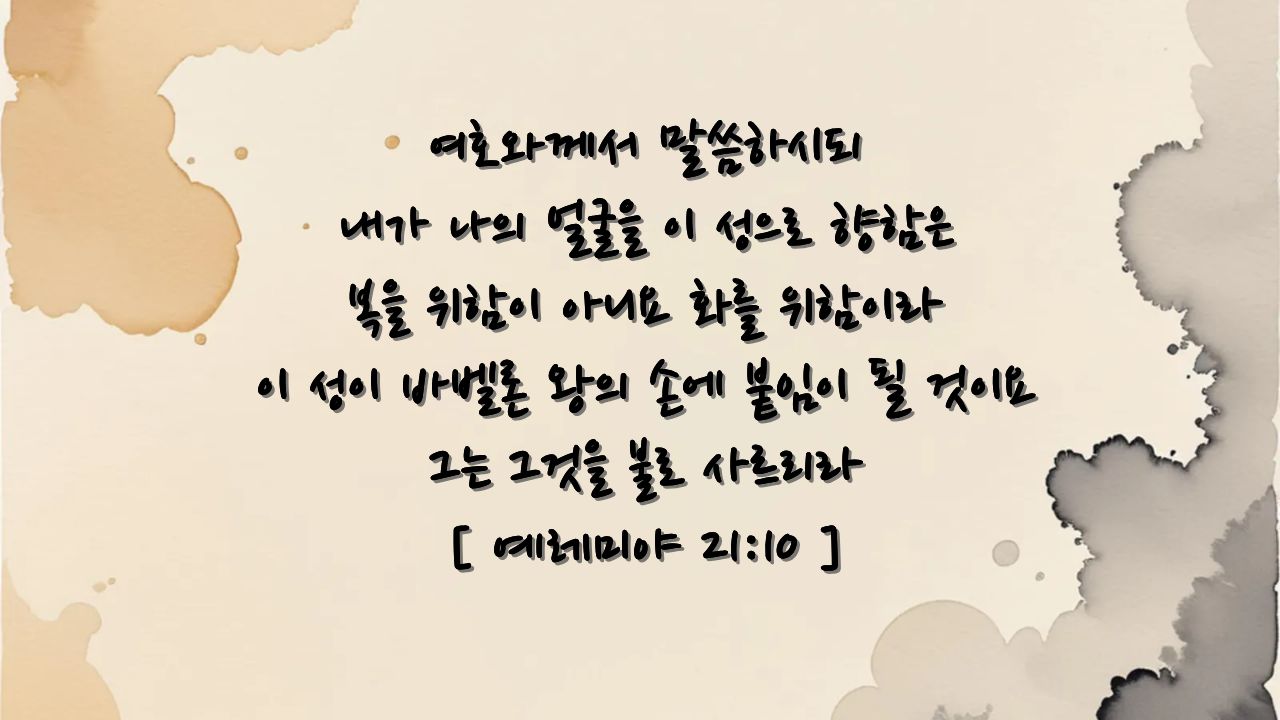 여호와께서 말씀하시되
내가 나의 얼굴을 이 성으로 향함은
복을 위함이 아니요 화를 위함이라
이 성이 바벨론 왕의 손에 붙임이 될 것이요
그는 그것을 불로 사르리라
[ 예레미야 21:10 ]